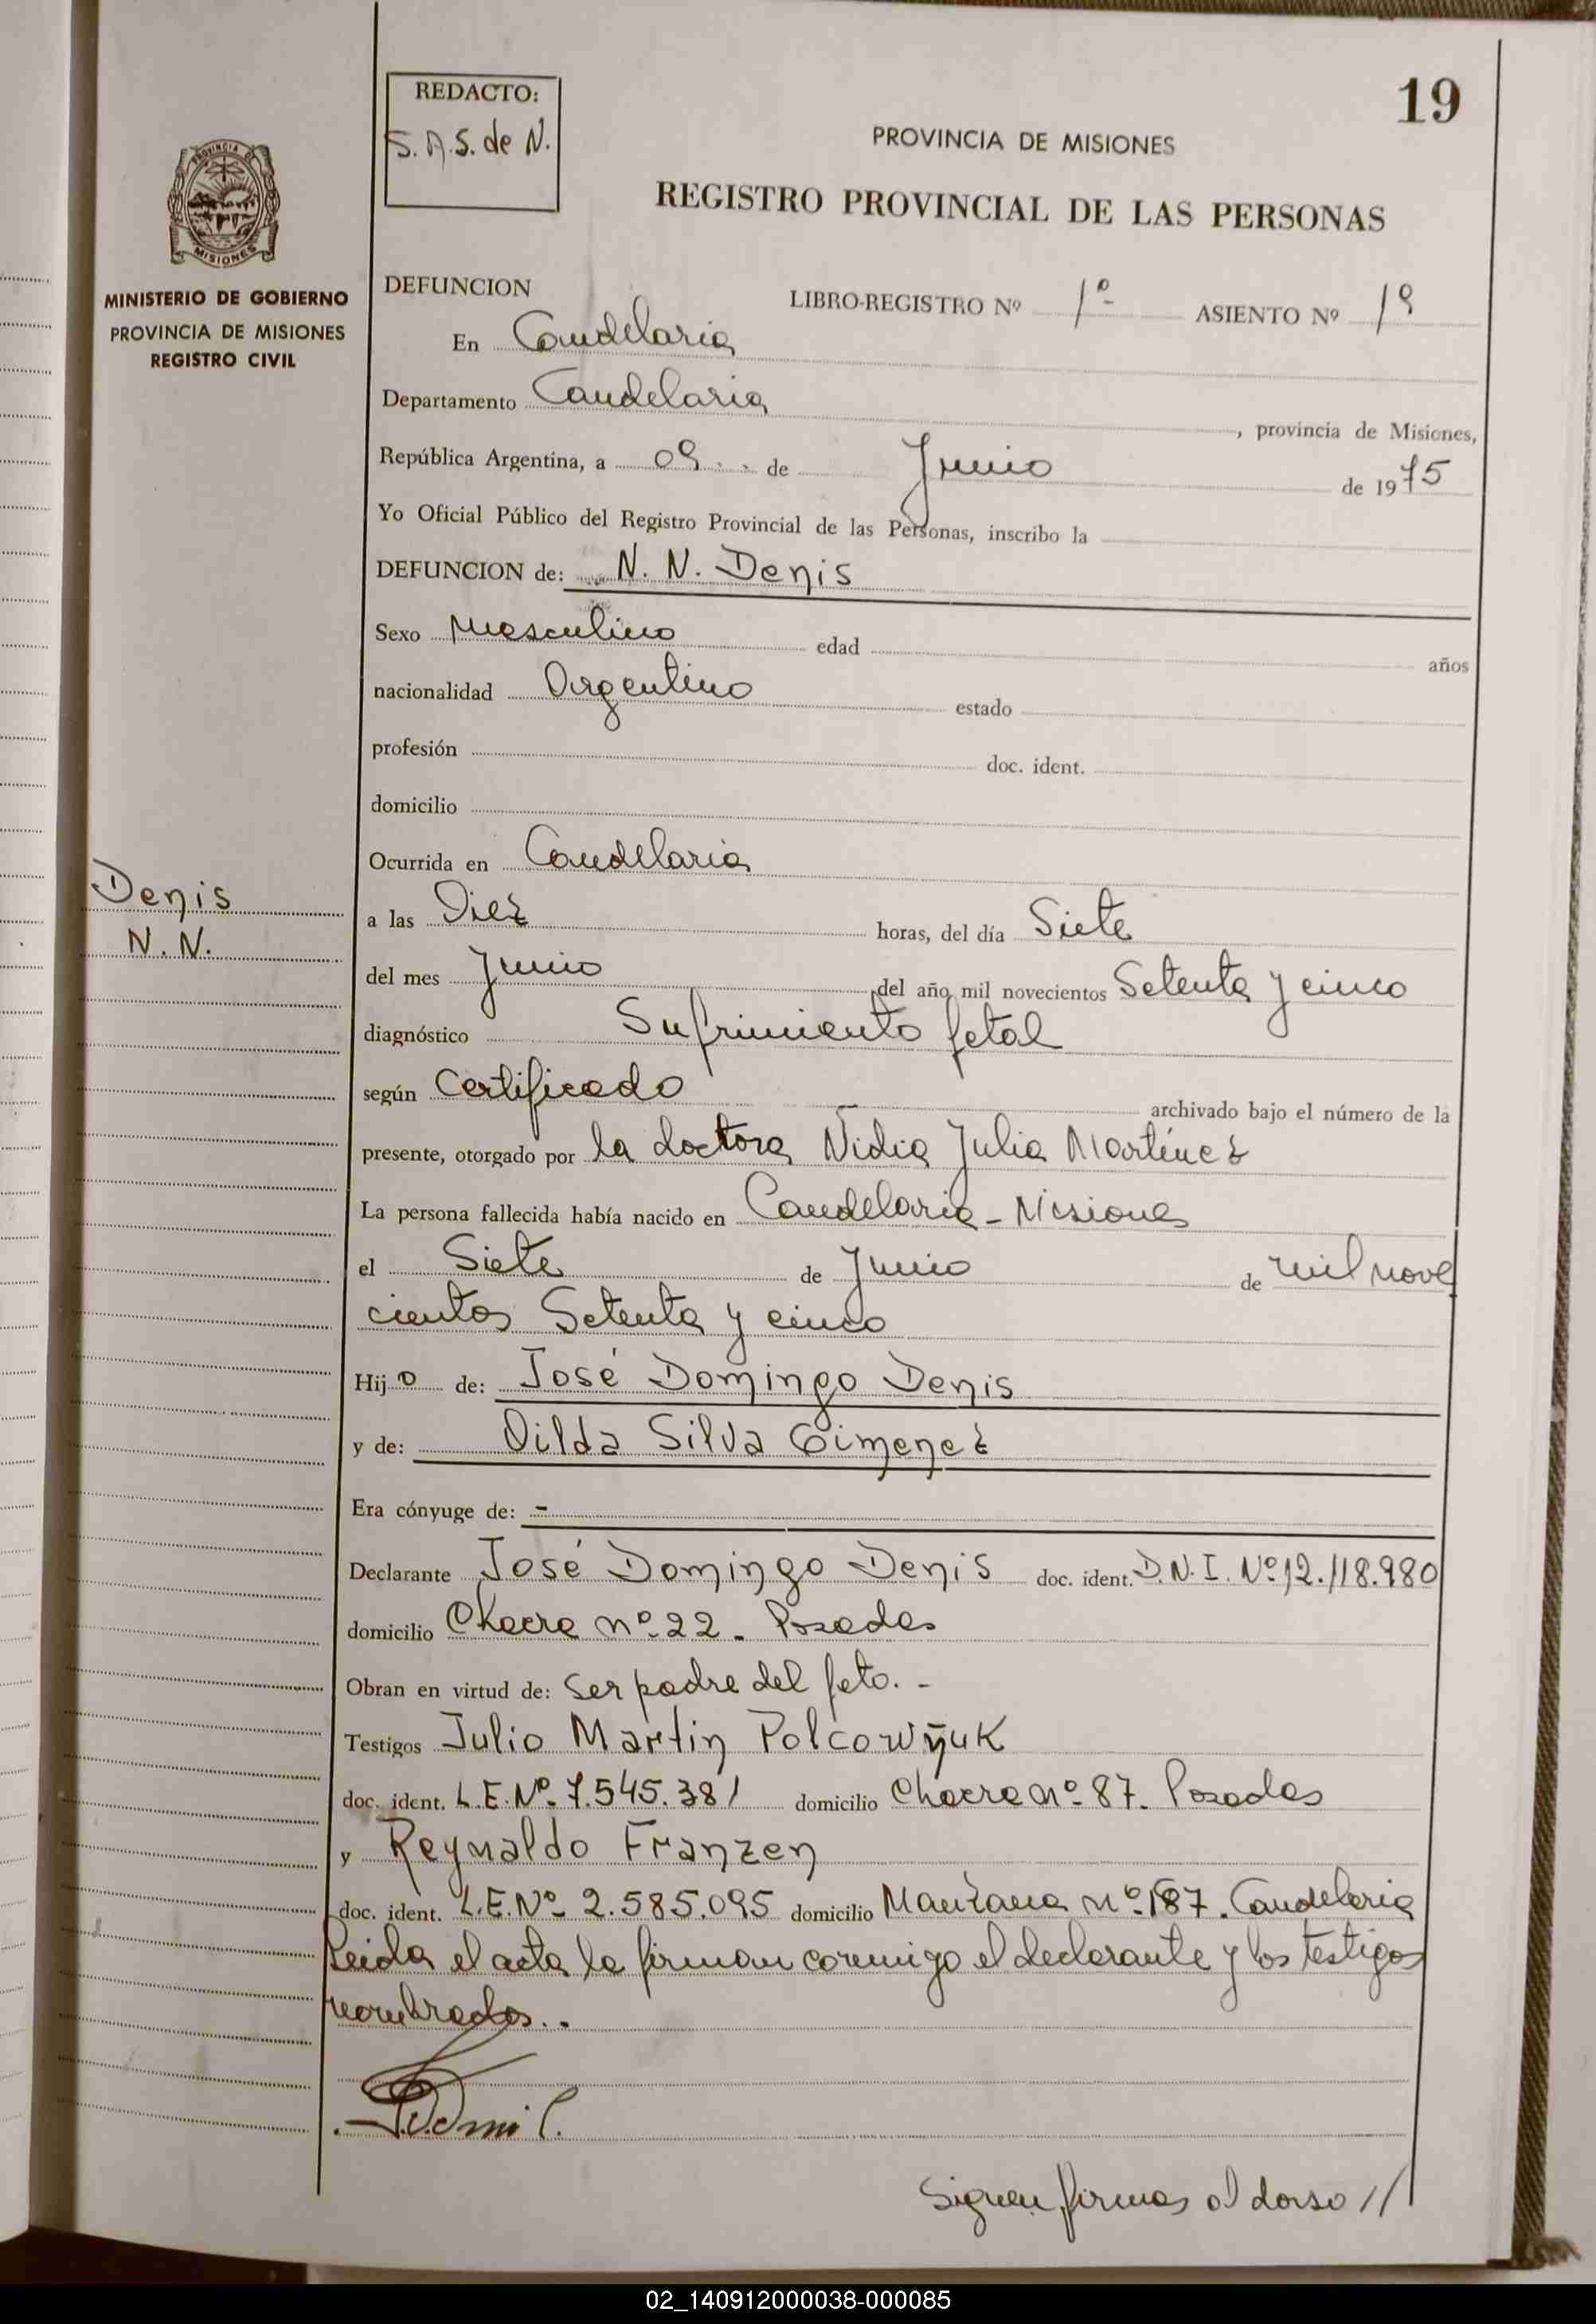 19
REDACTO:
S.A.S. de N.
PROVINCIA DE MISIONES
REGISTRO PROVINCIAL DE LAS PERSONAS
PROVINCIA DE
MISIONES
MINISTERIO DE GOBIERNO
PROVINCIA DE MISIONES
REGISTRO CIVIL
DEFUNCION LIBRO-REGISTRO Nº 1º ASIENTO Nº 19
En Candelaria
Departamento Candelaria, provincia de Misiones,
República Argentina, a 09 de Junio de 1975
Yo Oficial Público del Registro Provincial de las Personas, inscribo la
DEFUNCION de: N. N. Denis
Sexo Masculino edad años
nacionalidad Argentino estado
profesión doc. ident.
domicilio
Ocurrida en Candelaria
Denis
N. N.
a las Diez horas, del día Siete
del mes Junio del año mil novecientos Setenta y cinco
diagnóstico Sufrimiento fetal
según Certificado archivado bajo el número de la
presente, otorgado por la doctora Nidia Julia Martínez
La persona fallecida había nacido en Candelaria - Misiones
el Siete de Junio de mil nove
cientos Setenta y cinco
Hijo de: José Domingo Denis
y de: Oilda Silva Gimenez
Era cónyuge de: -
Declarante José Domingo Denis doc. ident. D.N.I. Nº 12.118.980
domicilio Chacra nº 22 - Posadas
Obran en virtud de: ser padre del feto. -
Testigos Julio Martin Polcowñuk
doc. ident. L.E. Nº 7.545.381 domicilio Chacra nº 87. Posadas
y Reynaldo Franzen
doc. ident. L.E. Nº 2.585.095 domicilio Manzana nº 187. Candelaria
Leida el acta la firman conmigo el declarante y los testigos
nombrados..
Siguen firmas al dorso //
02_140912000038-000085